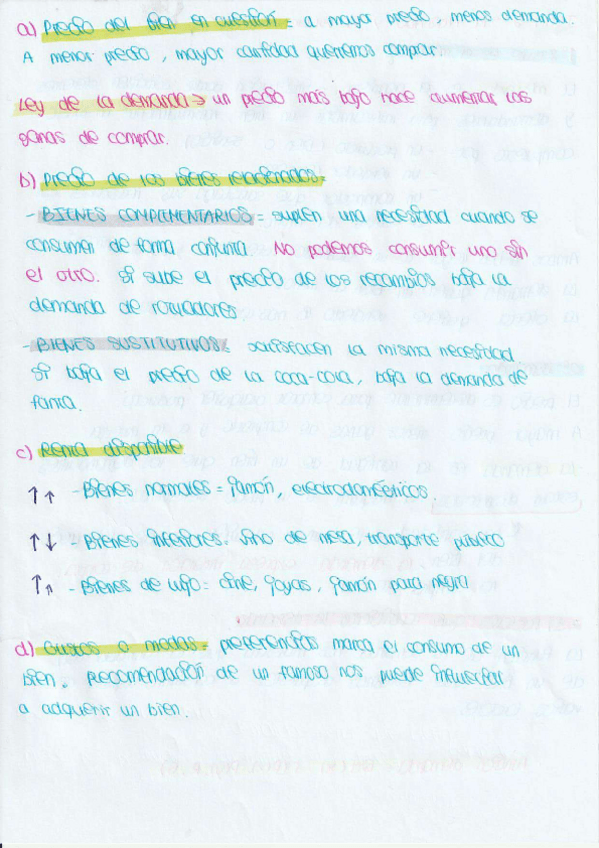 a) Precio del bien en cuestión = a mayor precio, menos demanda.
A menor precio, mayor cantidad queremos comprar.
Ley de la demanda → un precio más bajo hace aumentar las
ganas de comprar.
b) Precio de los bienes relacionados =
- BIENES COMPLEMENTARIOS = suplen una necesidad cuando se
consumen de forma conjunta. No podemos consumir uno sin
el otro. Si sube el precio de los recambios baja la
demanda de rotuladores
- BIENES SUSTITUTIVOS = satisfacen la misma necesidad
Si baja el precio de la coca-cola, baja la demanda de
fanta.
c) Renta disponible
↑↑ - Bienes normales = jamón, electrodomésticos
↑↓ - Bienes inferiores = vino de mesa, transporte público
↑↑ - Bienes de lujo = cine, joyas, jamón pata negra
d) Gustos o modas = preferencias marca el consumo de un
bien. Recomendación de un famoso nos puede influenciar
a adquirir un bien.